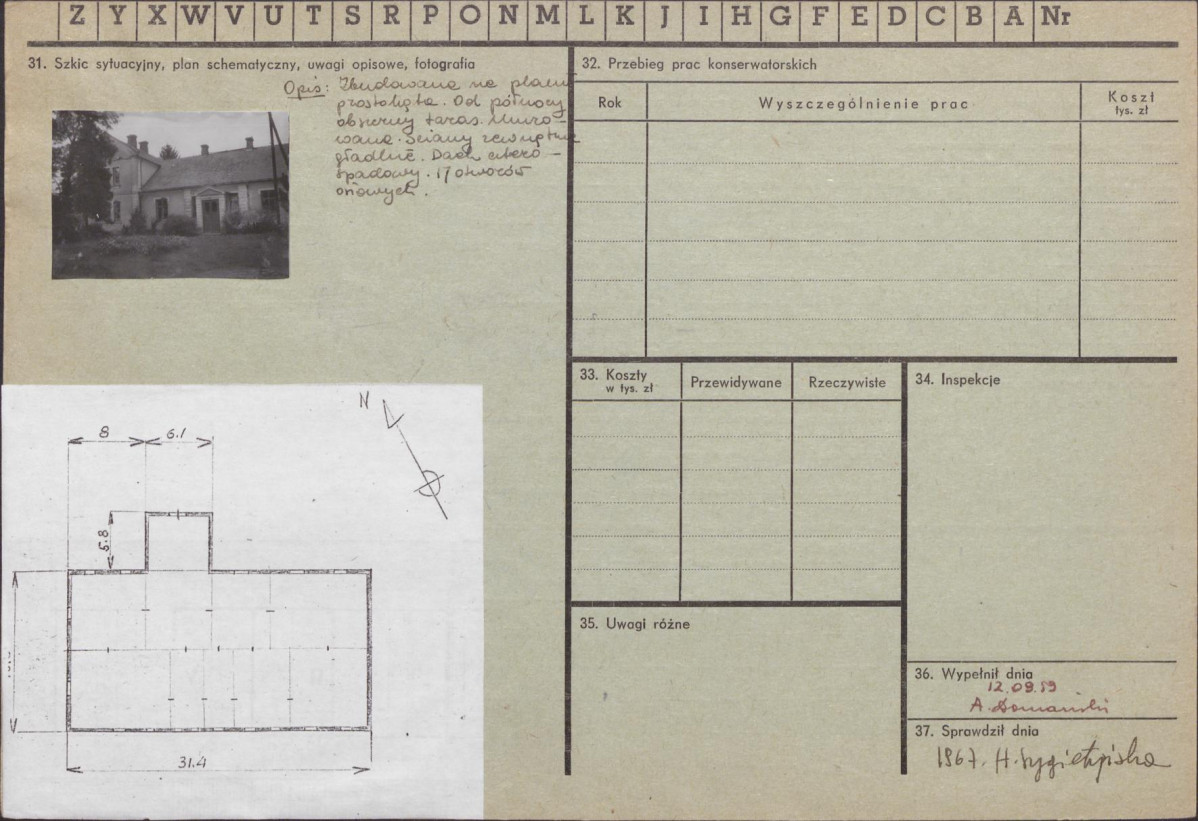 Z Y X W V U T S R P O N M L K J I H G F E D C B A Nr
31. Szkic sytuacyjny, plan schematyczny, uwagi opisowe, fotografia
Opis: Zbudowana na planie
prostokąta. Od północy
obszerny taras. Muro-
wana. Ściany zewnętrzne
gładkie. Dach cztero-
spadowy. 17 otworów
N
8
6.1
5.8
31.4
32. Przebieg prac konserwatorskich
Rok
Wyszczególnienie prac
Koszt
tys. zł
33. Koszty
w tys. zł
Przewidywane
Rzeczywiste
34. Inspekcje
35. Uwagi różne
36. Wypełnił dnia
12.09.59
A. Domański
37. Sprawdził dnia
1967. H.